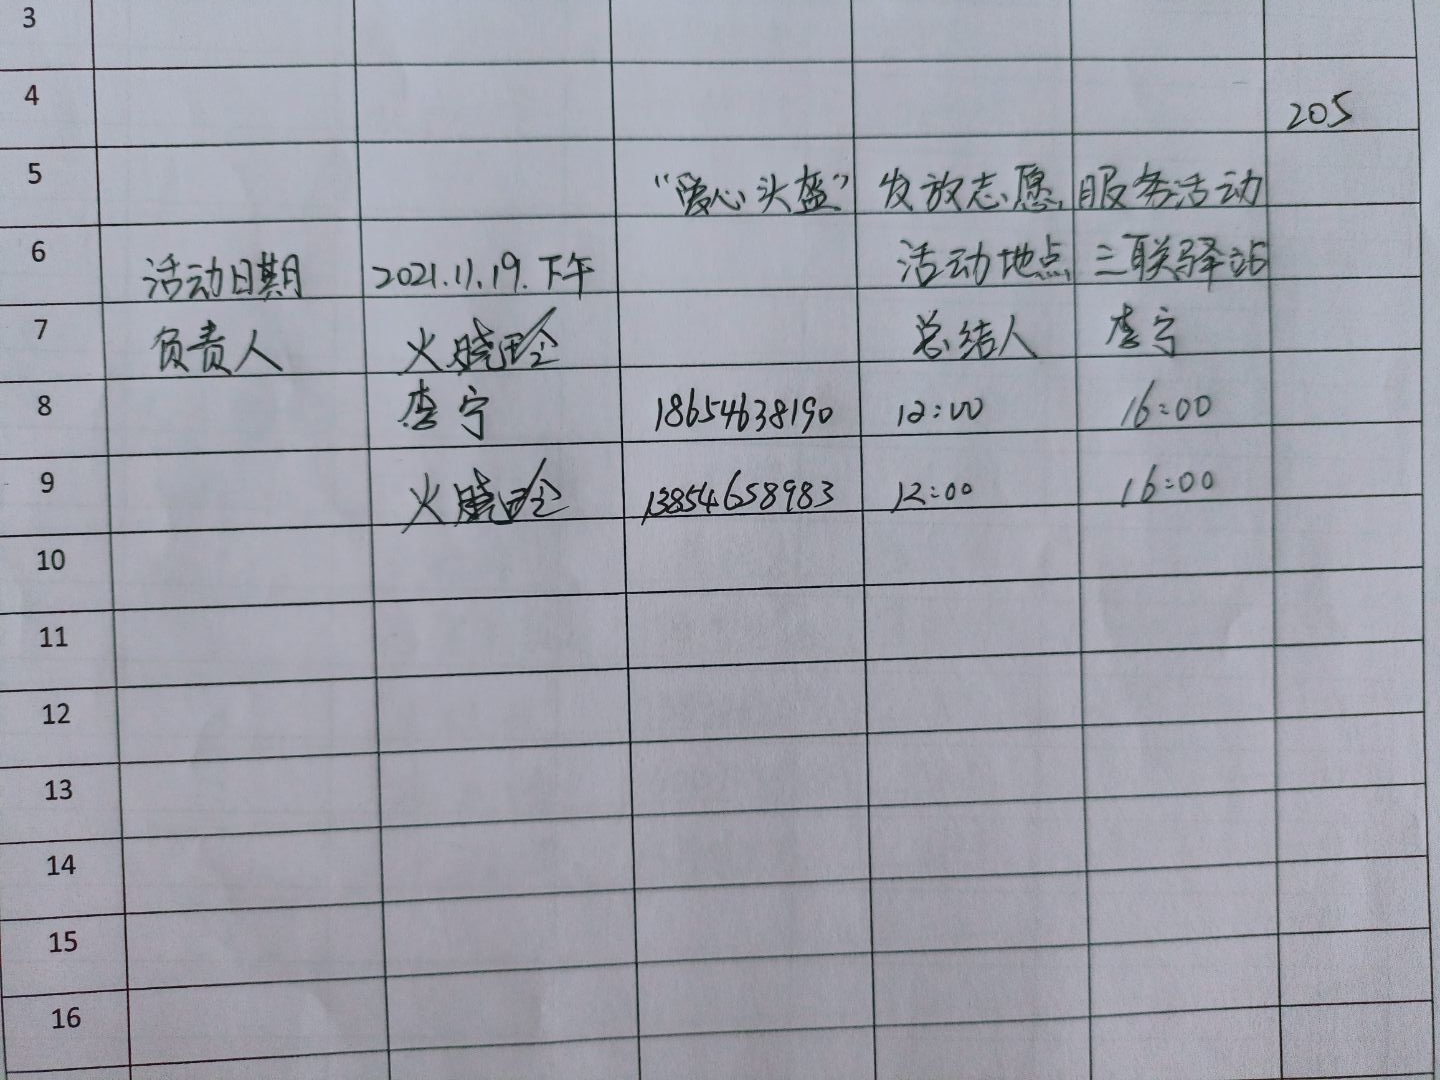 3
4 205
5 “爱心头盔”发放志愿服务活动
6 活动日期 2021.11.19.下午 活动地点 三联驿站
7 负责人 火晓玲 总结人 李宁
8 李宁 18654638190 12:00 16:00
9 火晓玲 13854658983 12:00 16:00
10
11
12
13
14
15
16